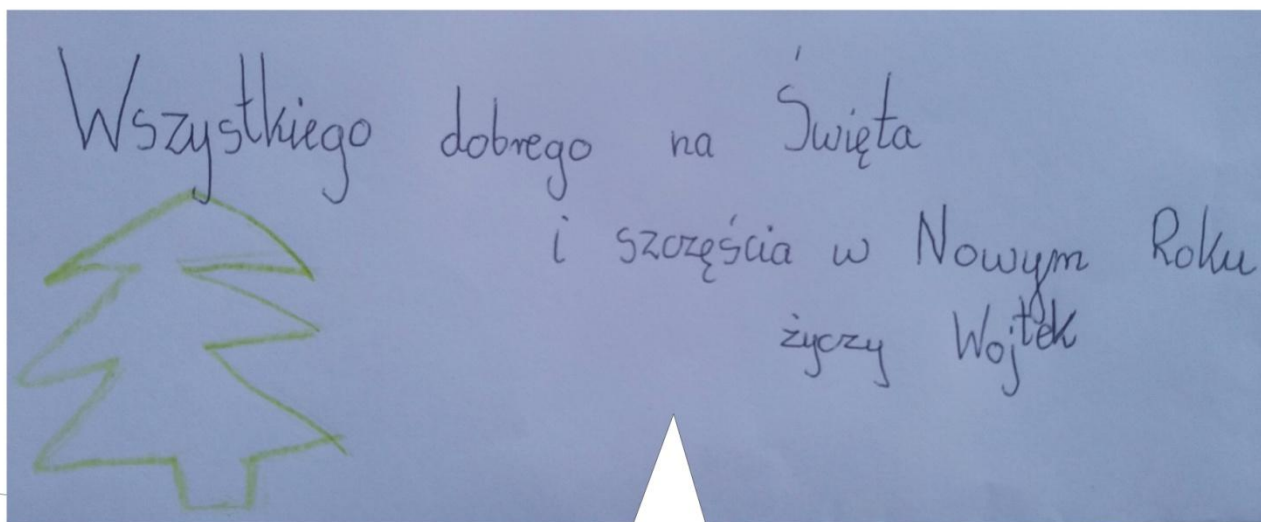 Wszystkiego dobrego na Święta
i szczęścia w Nowym Roku
życzy Wojtek